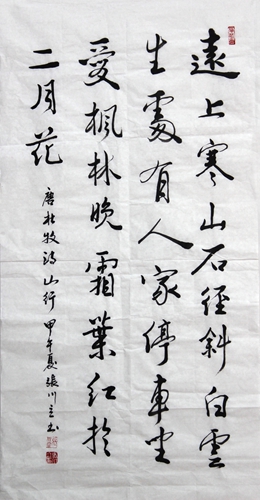 遠上寒山石径斜白雲
生處有人家停車坐
愛楓林晚霜葉紅於
二月花
唐杜牧詩山行甲午夏張川立书